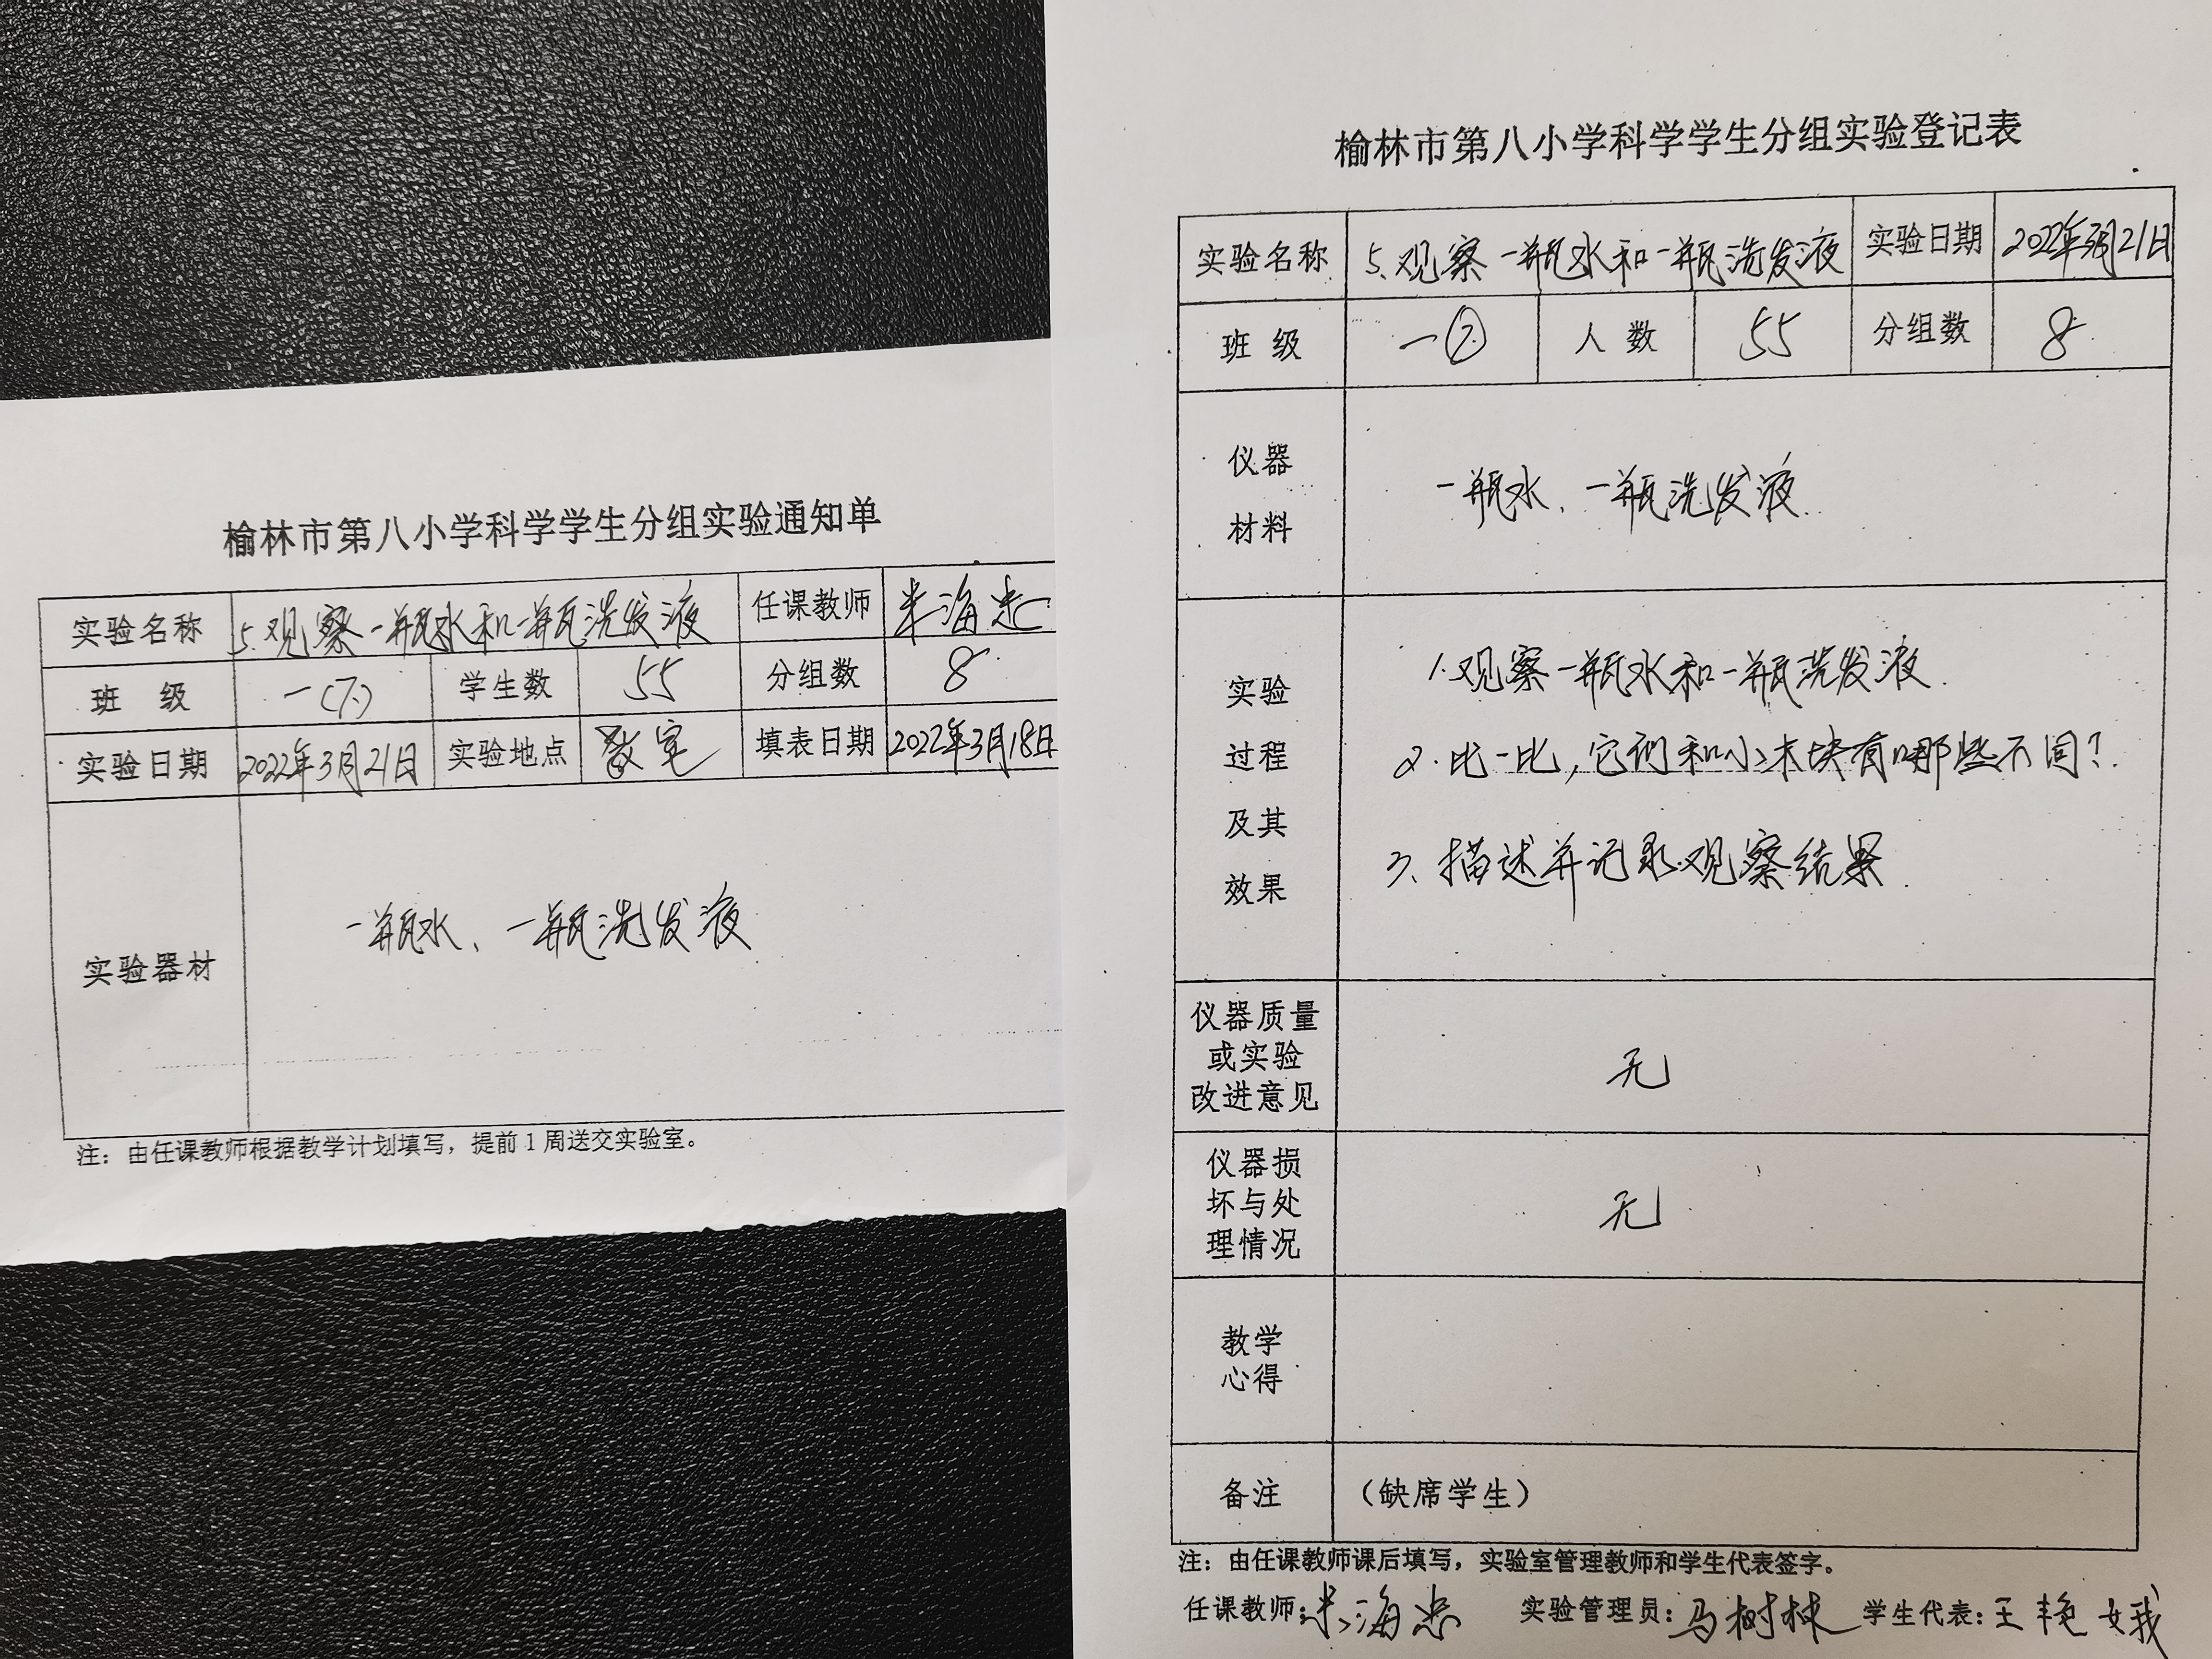 榆林市第八小学科学学生分组实验通知单
实验名称 5.观察一瓶水和一瓶洗发液 任课教师 米海忠
班 级 一(7) 学生数 55 分组数 8
实验日期 2022年3月21日 实验地点 教室 填表日期 2022年3月18日
实验器材 一瓶水、一瓶洗发液
注：由任课教师根据教学计划填写，提前1周送交实验室。
榆林市第八小学科学学生分组实验登记表
实验名称 5.观察一瓶水和一瓶洗发液 实验日期 2022年3月21日
班 级 一⑦ 人 数 55 分组数 8
仪器
材料
一瓶水、一瓶洗发液.
实验
过程
及其
效果
1.观察一瓶水和一瓶洗发液.
2.比一比,它们和小木块有哪些不同?
3、描述并记录观察结果.
仪器质量
或实验
改进意见
无
仪器损
坏与处
理情况
无
教学
心得
备注 （缺席学生）
注：由任课教师课后填写，实验室管理教师和学生代表签字。
任课教师：米海忠 实验管理员：马树林 学生代表：王艳娥